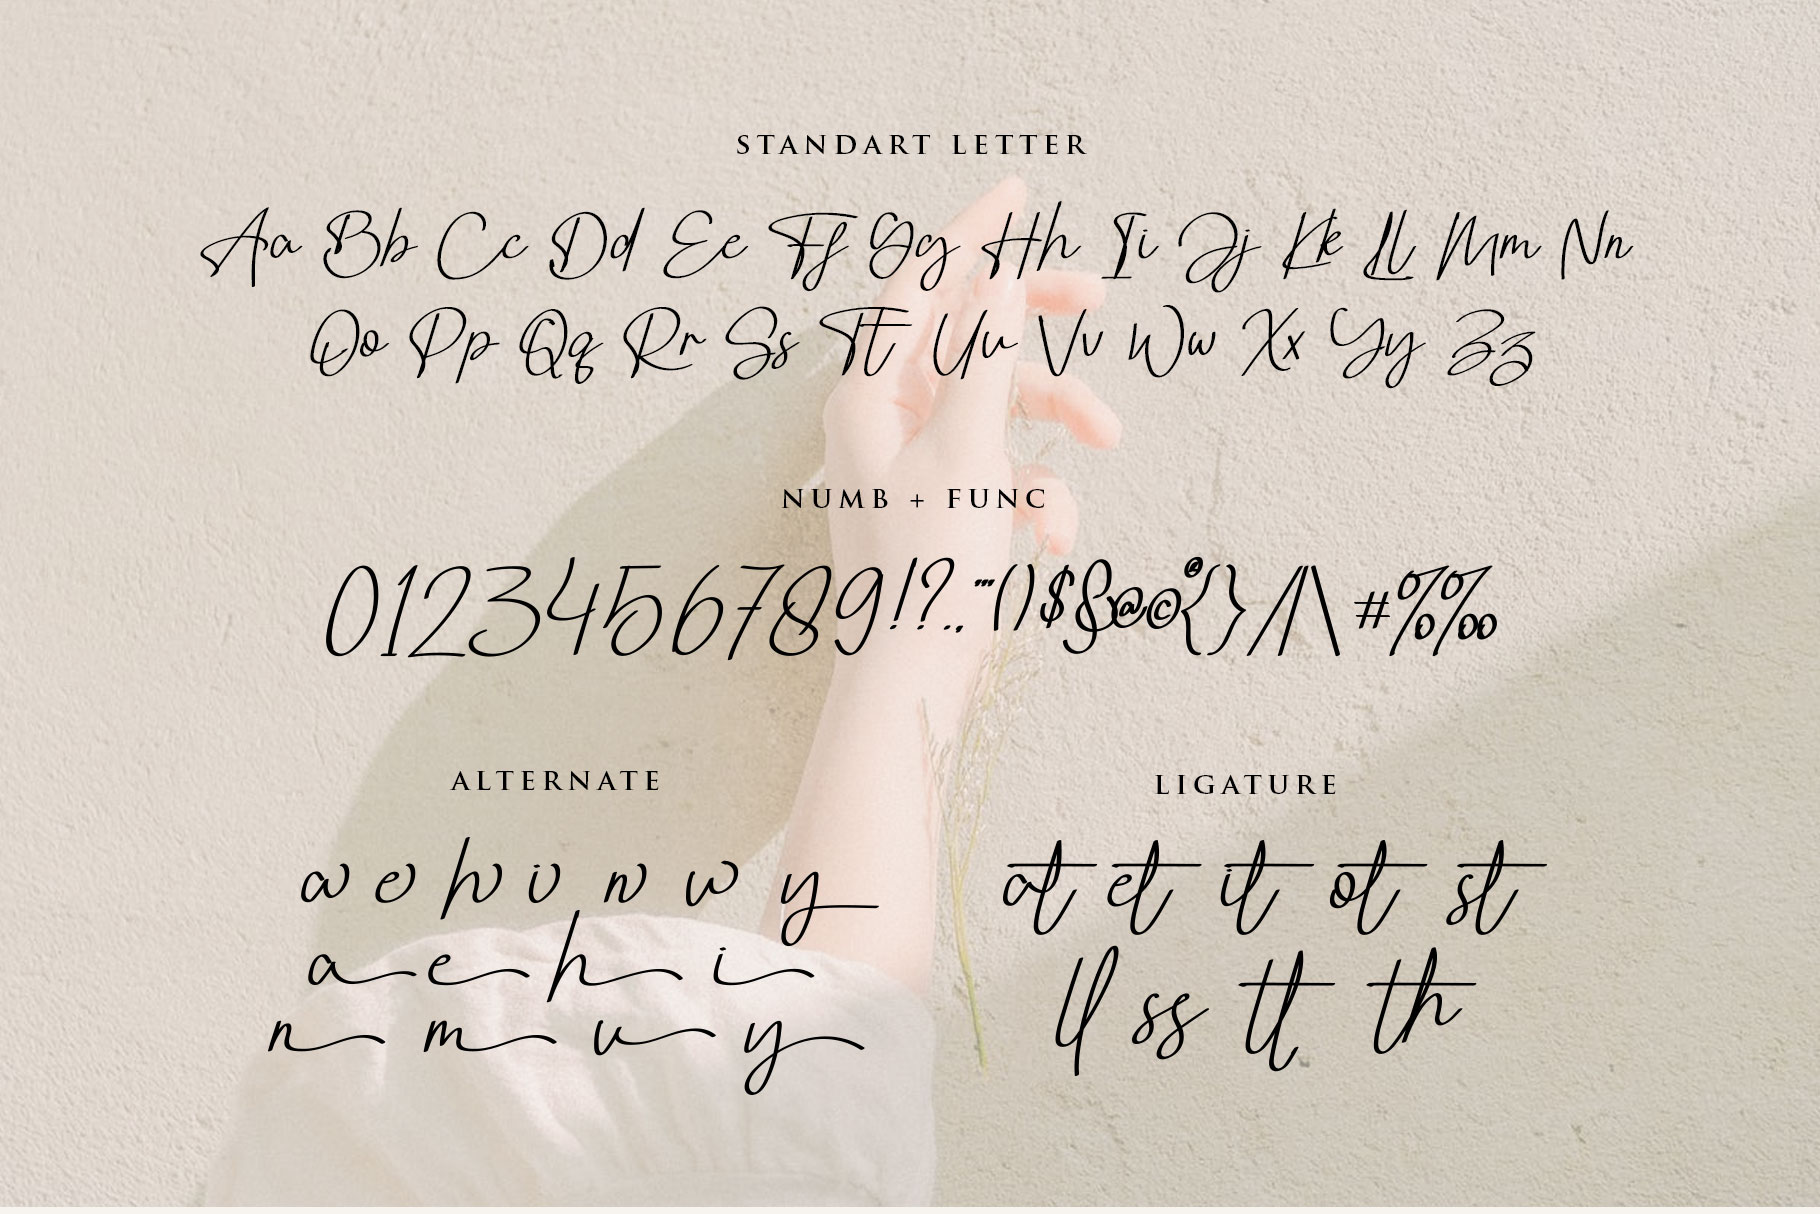 STANDART LETTER
Aa Bb Cc Dd Ee Ff Gg Hh Ii Jj Kk Ll Mm Nn
Oo Pp Qq Rr Ss Tt Uu Vv Ww Xx Yy Zz
NUMB + FUNC
0123456789!?.,"'()$&@©®{}/|\#%‰
ALTERNATE
a e h i n w y
a e h i
n m u y
LIGATURE
at et it ot st
ll ss tt th